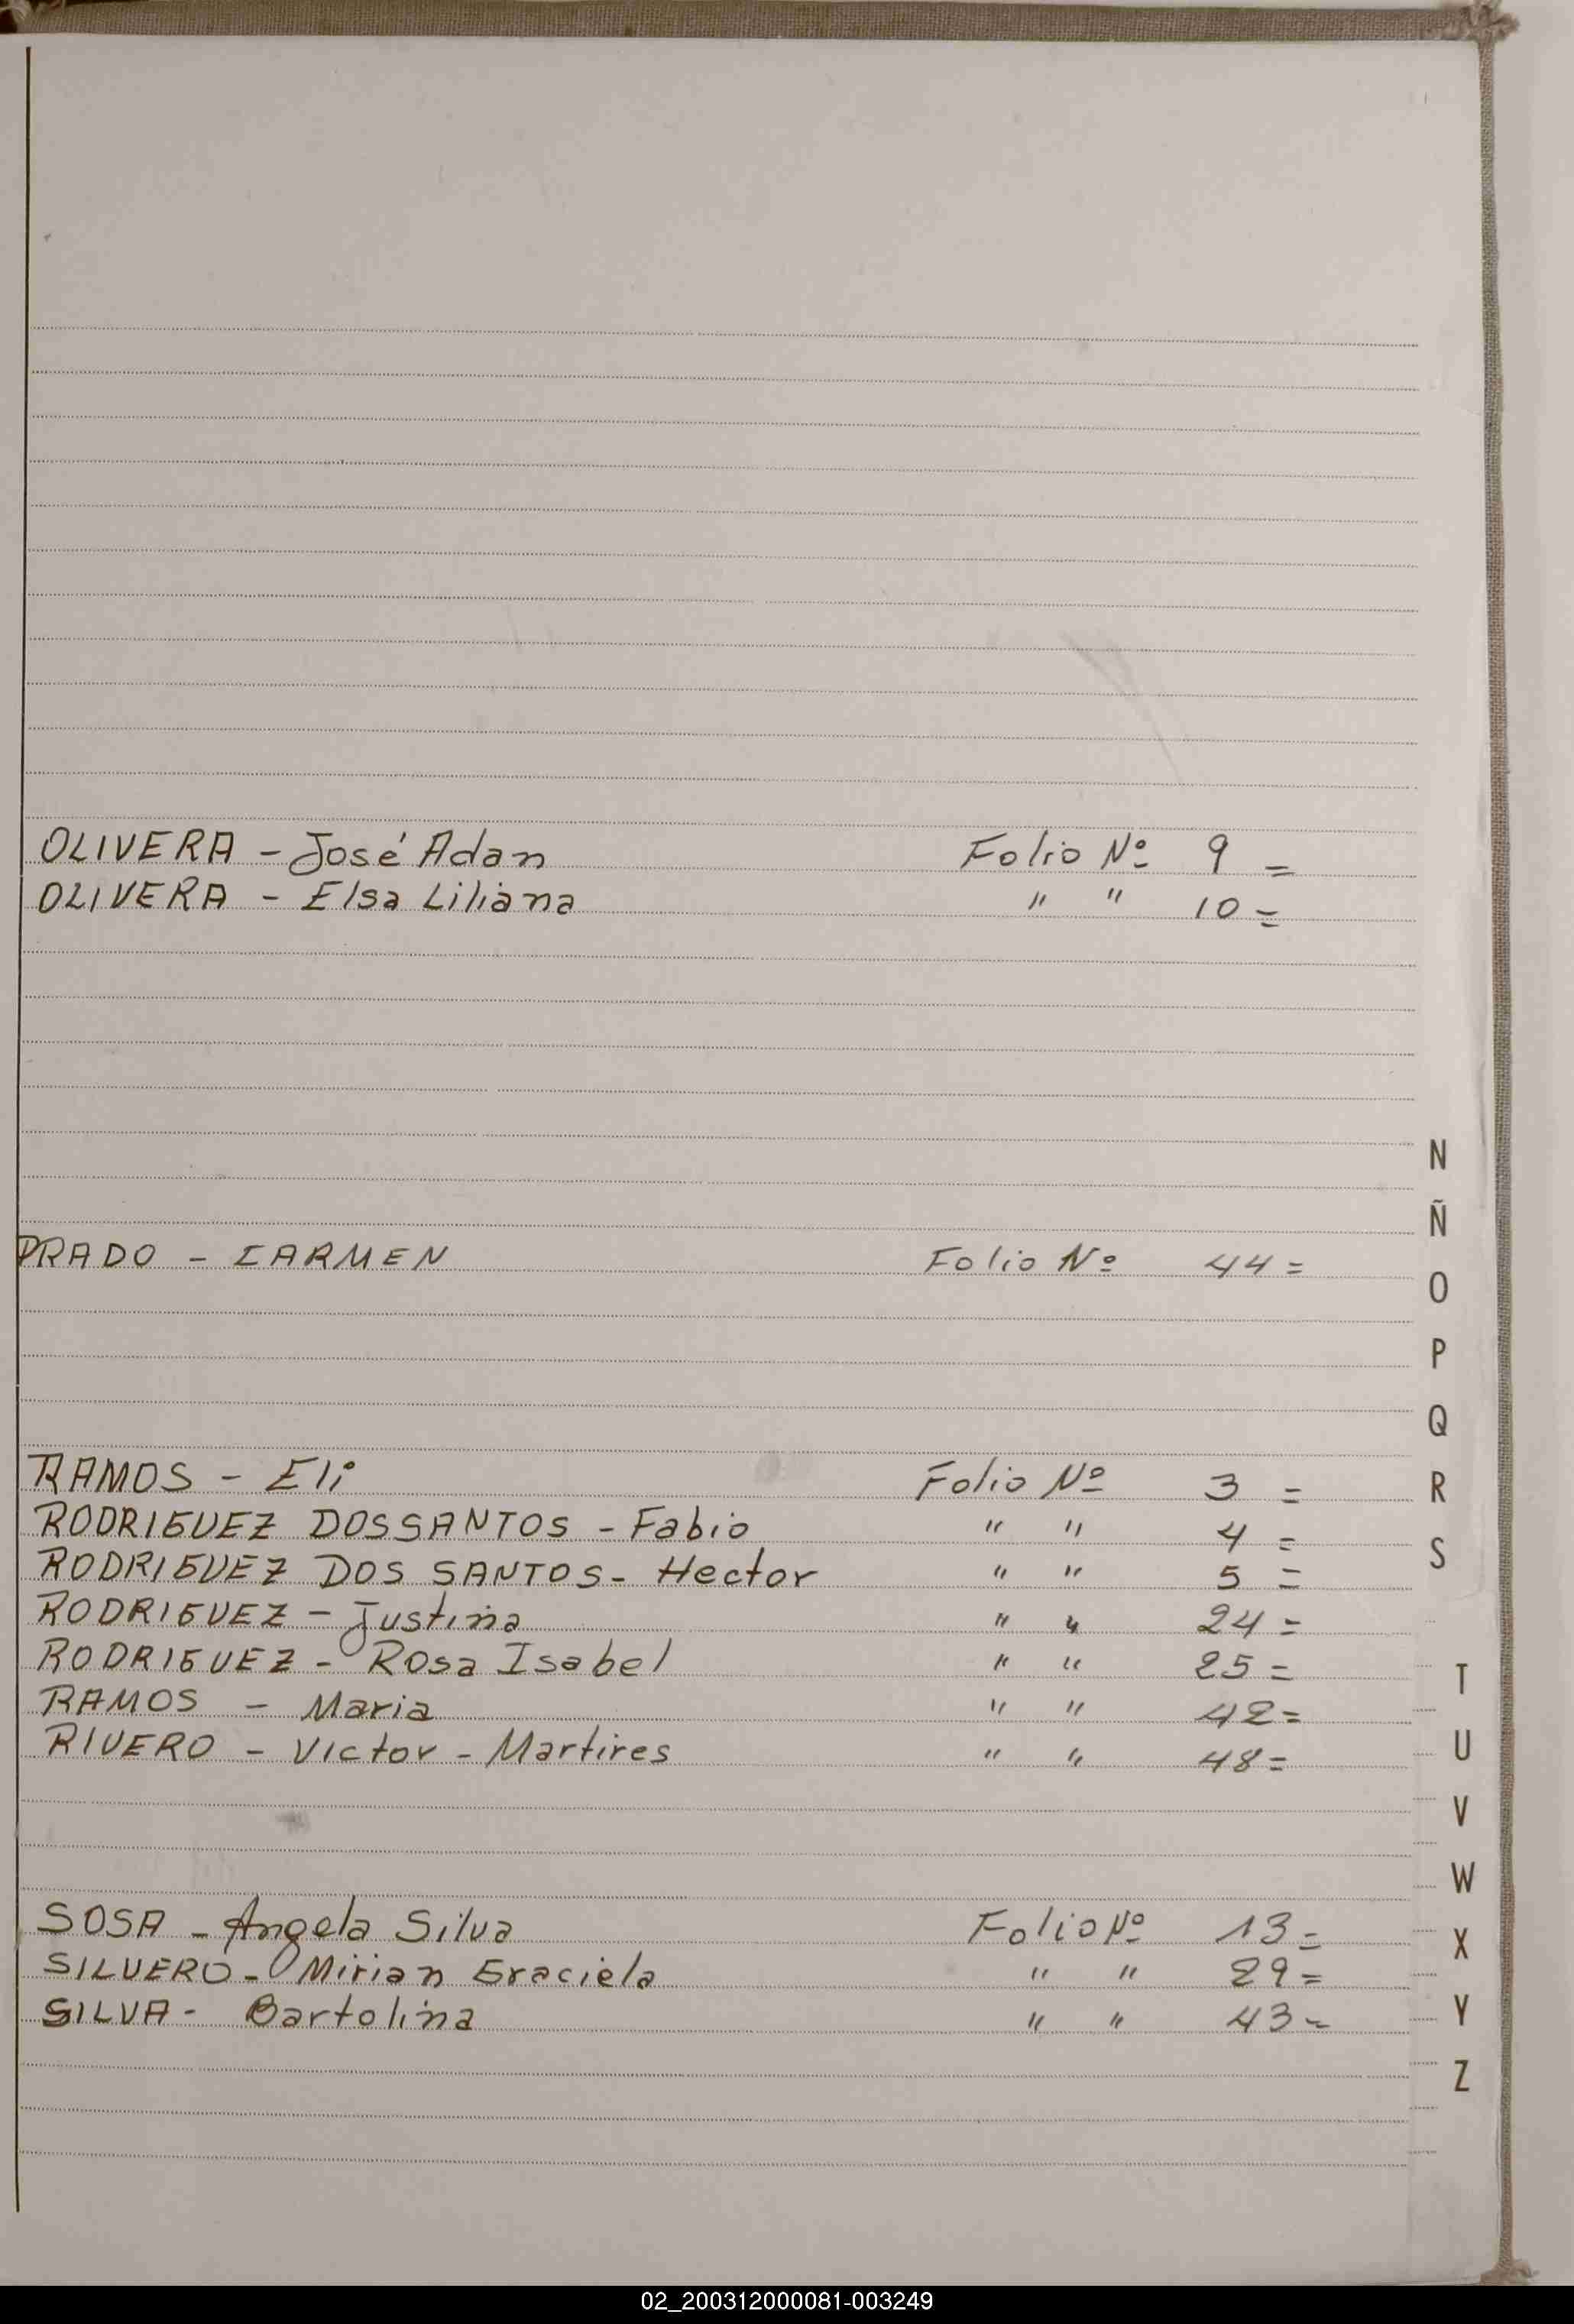 OLIVERA - José Adan Folio Nº 9 =
OLIVERA - Elsa Liliana " " 10 =
N
Ñ
PRADO - CARMEN Folio Nº 44 =
O
P
Q
RAMOS - Eli Folio Nº 3 =
R
RODRIGUEZ DOSSANTOS - Fabio " " 4 =
S
RODRIGUEZ DOS SANTOS - Hector " " 5 =
RODRIGUEZ - Justina " " 24 =
RODRIGUEZ - Rosa Isabel " " 25 =
T
RAMOS - Maria " " 42 =
RIVERO - Victor - Martires " " 48 =
U
V
W
SOSA - Angela Silva Folio Nº 13 =
X
SILVERO - Mirian Graciela " " 29 =
SILVA - Bartolina " " 43 =
Y
Z
02_200312000081-003249